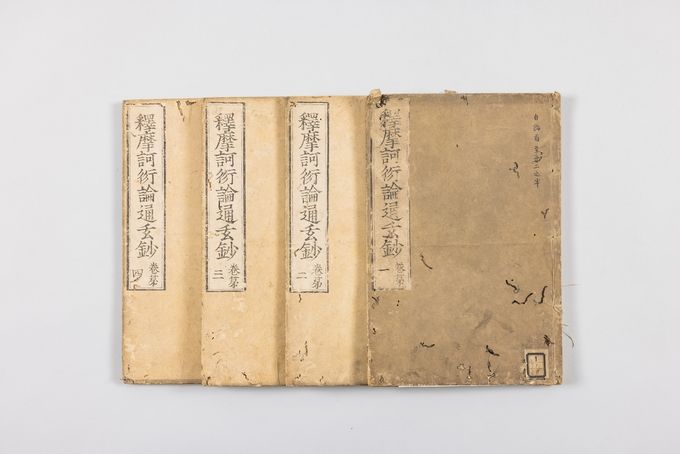 釋摩訶衍論通玄鈔
卷第
一
釋摩訶衍論通玄鈔
卷第
二
釋摩訶衍論通玄鈔
卷第
三
釋摩訶衍論通玄鈔
卷第
四